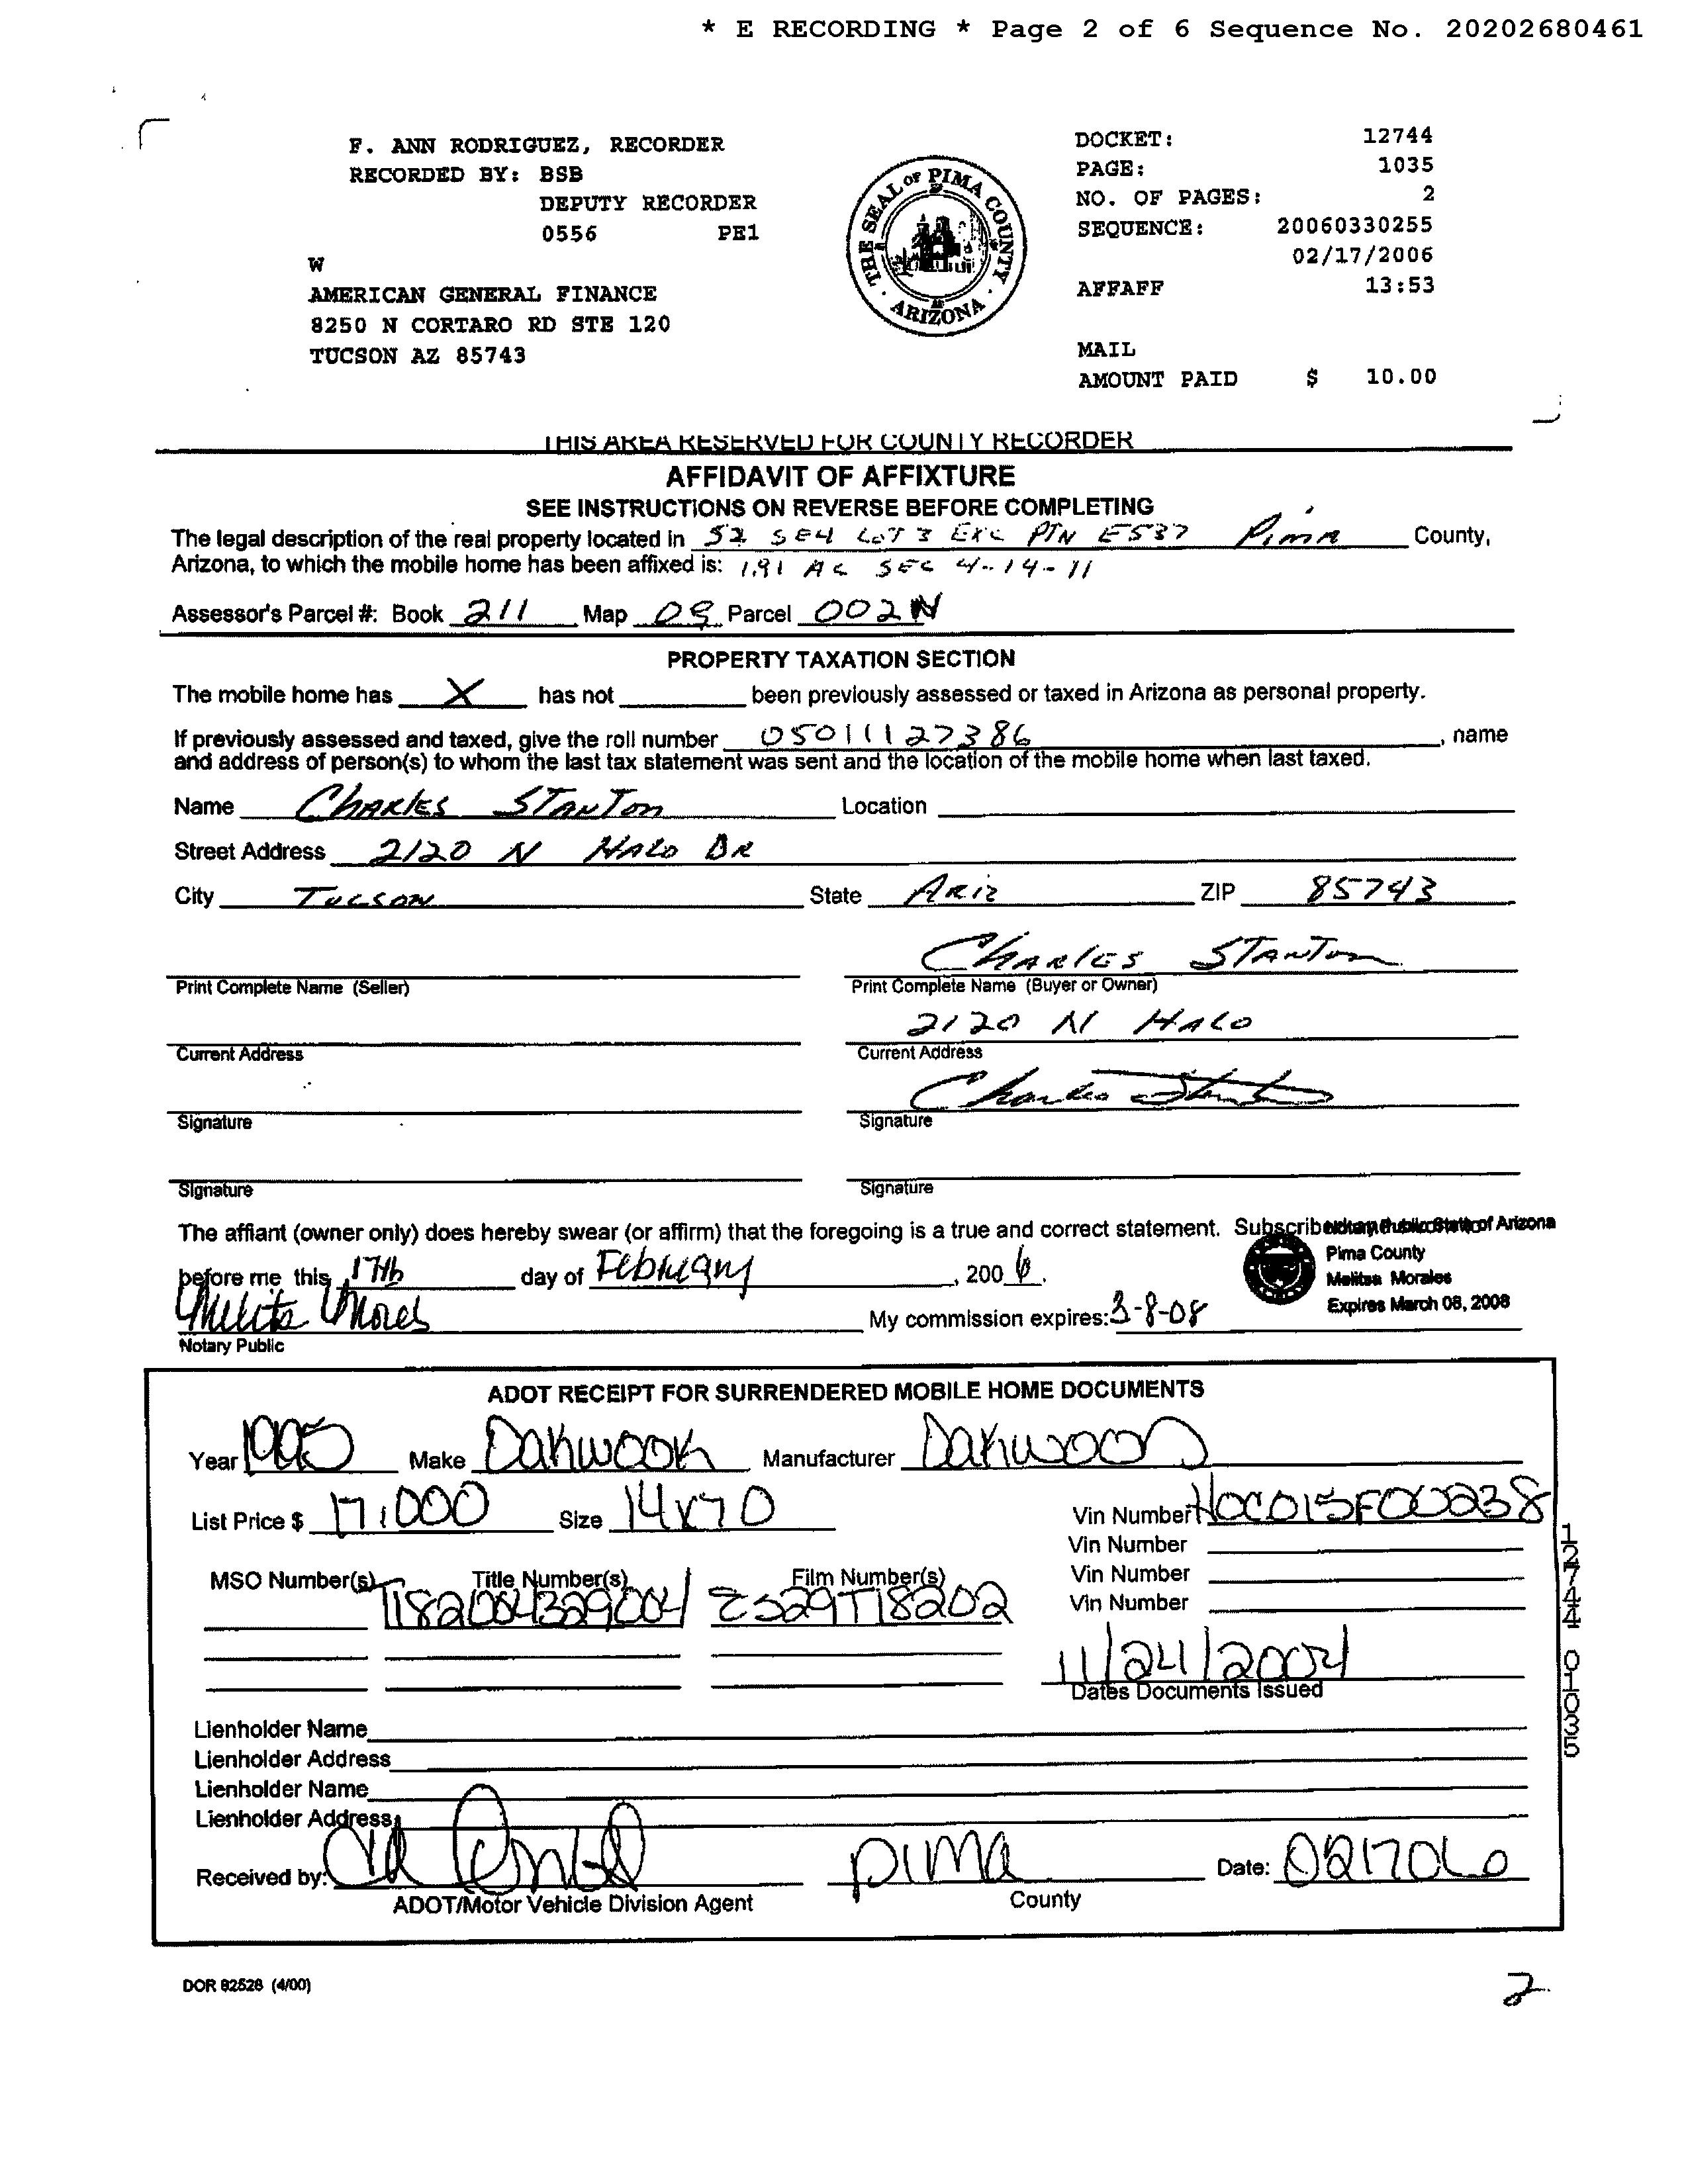 * E RECORDING * Page 2 of 6 Sequence No. 20202680461
F. ANN RODRIGUEZ, RECORDER
RECORDED BY: BSB
DEPUTY RECORDER
0556 PE1
W
AMERICAN GENERAL FINANCE
8250 N CORTARO RD STE 120
TUCSON AZ 85743
THE SEAL OF PIMA COUNTY · ARIZONA ·
DOCKET: 12744
PAGE: 1035
NO. OF PAGES: 2
SEQUENCE: 20060330255
02/17/2006
AFFAFF 13:53
MAIL
AMOUNT PAID $ 10.00
THIS AREA RESERVED FOR COUNTY RECORDER
AFFIDAVIT OF AFFIXTURE
SEE INSTRUCTIONS ON REVERSE BEFORE COMPLETING
The legal description of the real property located in S2 SE4 LOT 3 EXC PTN E537 Pima County,
Arizona, to which the mobile home has been affixed is: 1.91 AC SEC 4-14-11
Assessor's Parcel #: Book 211 Map 09 Parcel 002N
PROPERTY TAXATION SECTION
The mobile home has X has not been previously assessed or taxed in Arizona as personal property.
If previously assessed and taxed, give the roll number 05011127386, name
and address of person(s) to whom the last tax statement was sent and the location of the mobile home when last taxed.
Name CHARLES STANTON Location
Street Address 2120 N HALO DR
City TUCSON State ARIZ ZIP 85743
CHARLES STANTON
Print Complete Name (Seller) Print Complete Name (Buyer or Owner)
2120 N HALO
Current Address Current Address
Charles Stanton
Signature Signature
Signature Signature
The affiant (owner only) does hereby swear (or affirm) that the foregoing is a true and correct statement. Subscribed
Notary Public State of Arizona
Pima County
Melitsa Morales
Expires March 08, 2008
before me this 17th day of February, 2006.
My commission expires: 3-8-08
Notary Public
ADOT RECEIPT FOR SURRENDERED MOBILE HOME DOCUMENTS
Year 1995 Make Oakwook Manufacturer Oakwood
List Price $ 17,000 Size 14x70 Vin Number HOCO15F00238
Vin Number
Vin Number
Vin Number
MSO Number(s) Title Number(s) Film Number(s)
T182004329004 ES29T18202
11/24/2004
Dates Documents Issued
Lienholder Name
Lienholder Address
Lienholder Name
Lienholder Address
Received by: Pima Date: 021706
ADOT/Motor Vehicle Division Agent County
12744 01035
DOR 82528 (4/00)
2